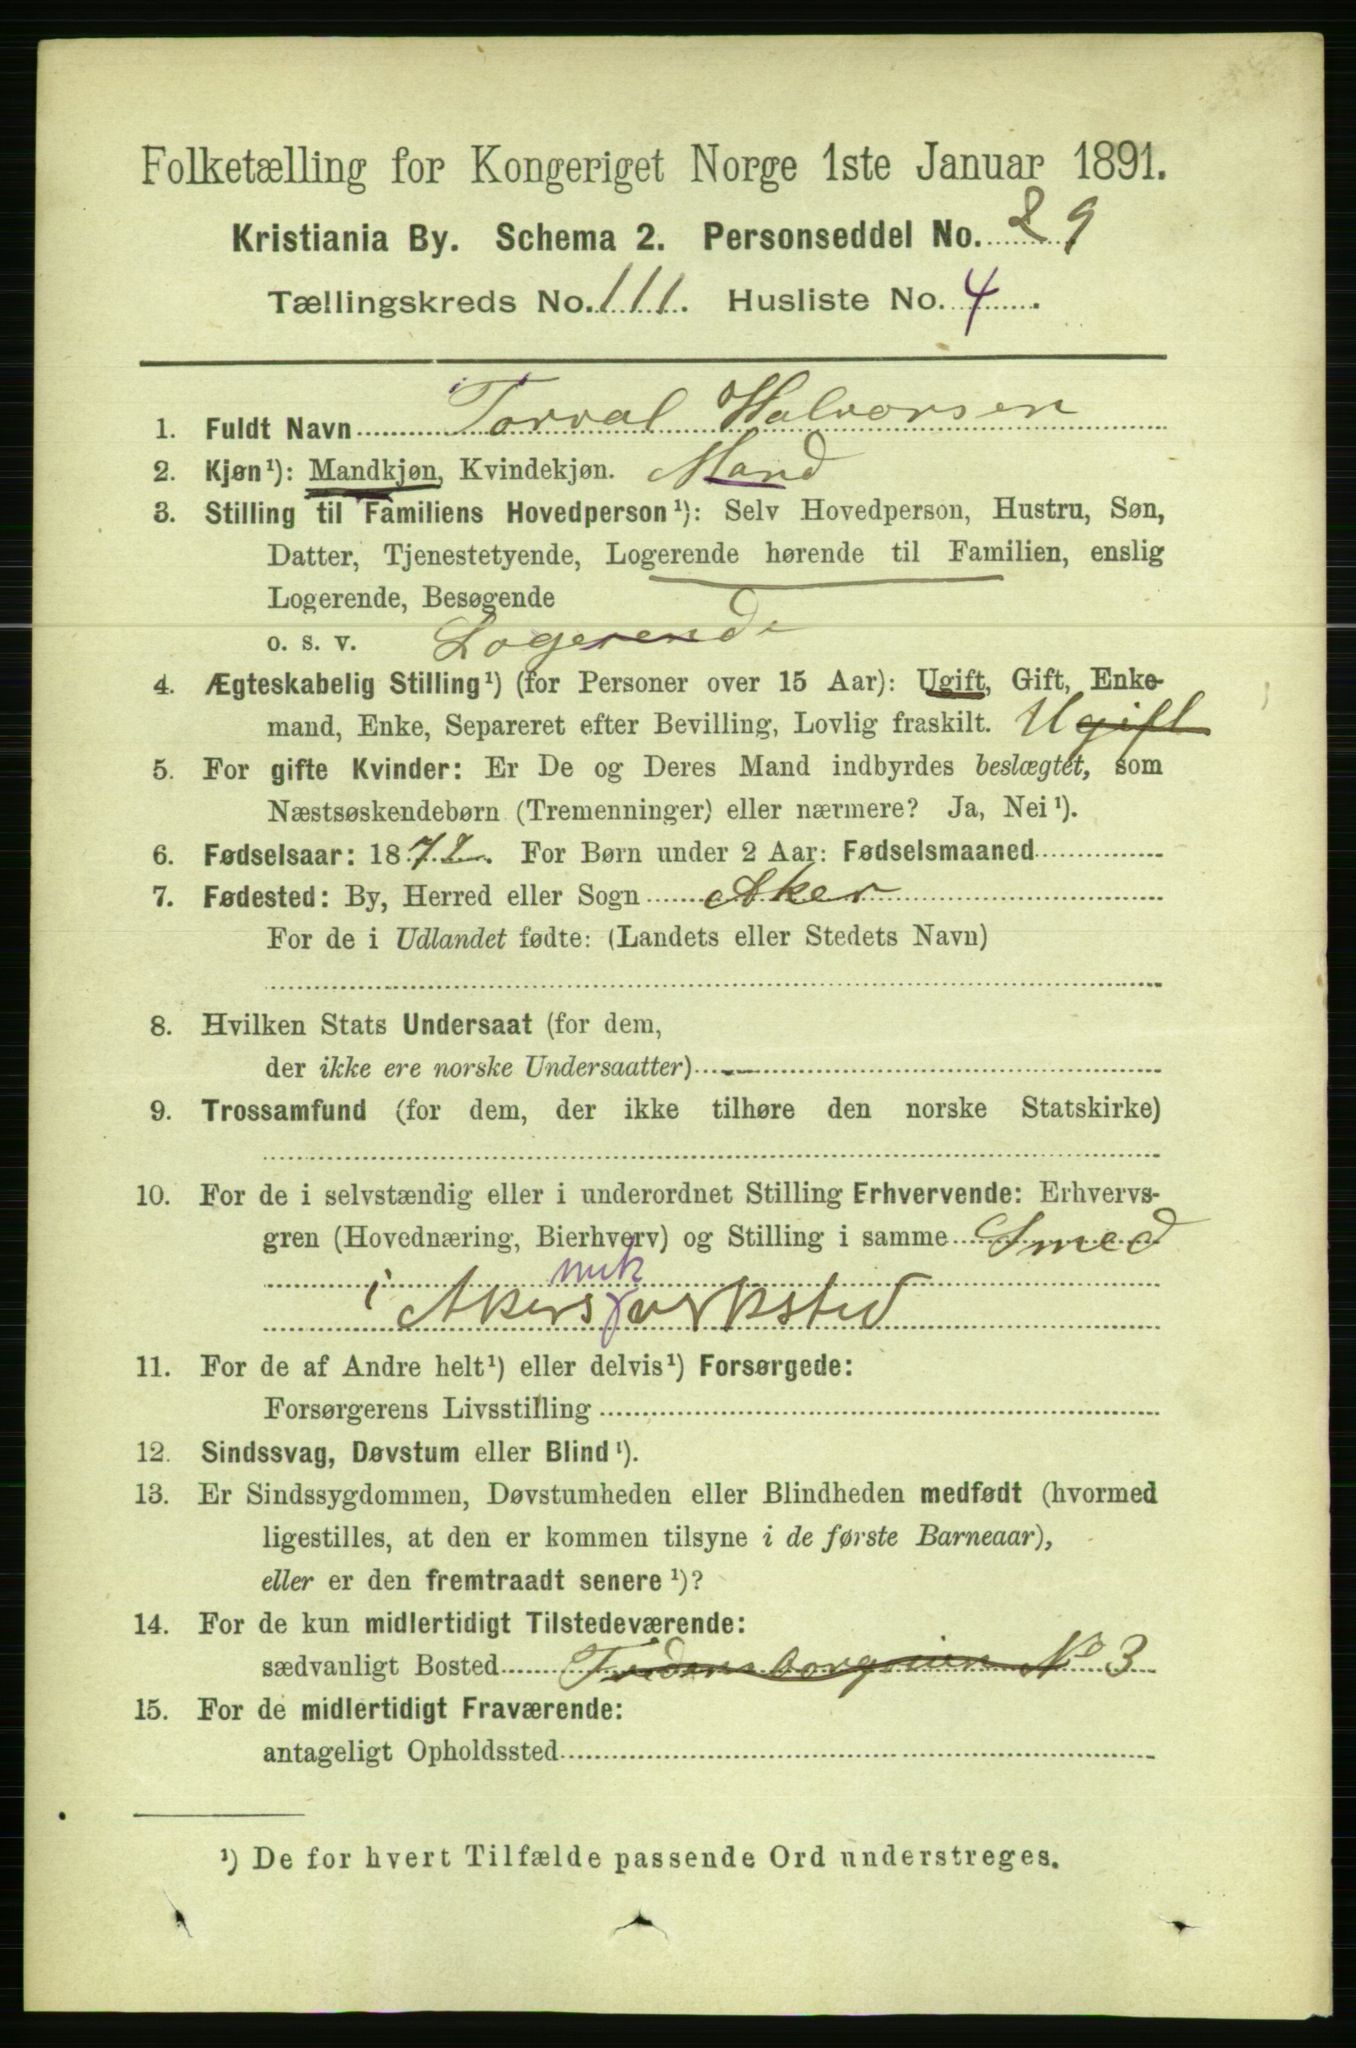 Folketælling for Kongeriget Norge 1ste Januar 1891.
Kristiania By. Schema 2. Personseddel No. 29
Tællingskreds No. 111. Husliste No. 4.
1. Fuldt Navn Torval Halvorsen
2. Kjøn¹): Mandkjøn, Kvindekjøn. Mand
3. Stilling til Familiens Hovedperson¹): Selv Hovedperson, Hustru, Søn,
Datter, Tjenestetyende, Logerende hørende til Familien, enslig
Logerende, Besøgende
o. s. v. Logerende
4. Ægteskabelig Stilling¹) (for Personer over 15 Aar): Ugift, Gift, Enke-
mand, Enke, Separeret efter Bevilling, Lovlig fraskilt. Ugift
5. For gifte Kvinder: Er De og Deres Mand indbyrdes beslægtet, som
Næstsøskendebørn (Tremenninger) eller nærmere? Ja, Nei¹).
6. Fødselsaar: 1872. For Børn under 2 Aar: Fødselsmaaned
7. Fødested: By, Herred eller Sogn Aker
For de i Udlandet fødte: (Landets eller Stedets Navn)
8. Hvilken Stats Undersaat (for dem,
der ikke ere norske Undersaatter)
9. Trossamfund (for dem, der ikke tilhøre den norske Statskirke)
10. For de i selvstændig eller i underordnet Stilling Erhvervende: Erhvervs-
gren (Hovednæring, Bierhverv) og Stilling i samme Smed
mek
i Akers værksted
11. For de af Andre helt¹) eller delvis¹) Forsørgede:
Forsørgerens Livsstilling
12. Sindssvag, Døvstum eller Blind¹).
13. Er Sindssygdommen, Døvstumheden eller Blindheden medfødt (hvormed
ligestilles, at den er kommen tilsyne i de første Barneaar),
eller er den fremtraadt senere¹)?
14. For de kun midlertidigt Tilstedeværende:
sædvanligt Bosted No 3
15. For de midlertidigt Fraværende:
antageligt Opholdssted
¹) De for hvert Tilfælde passende Ord understreges.